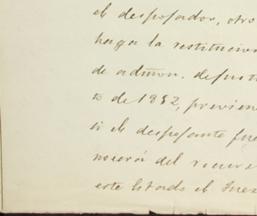 el despojados, otro
haga la restitucion
de admon. de justi
de 1912, previen
si el despojante fue
nocerá del recurso
este Estado el Juez